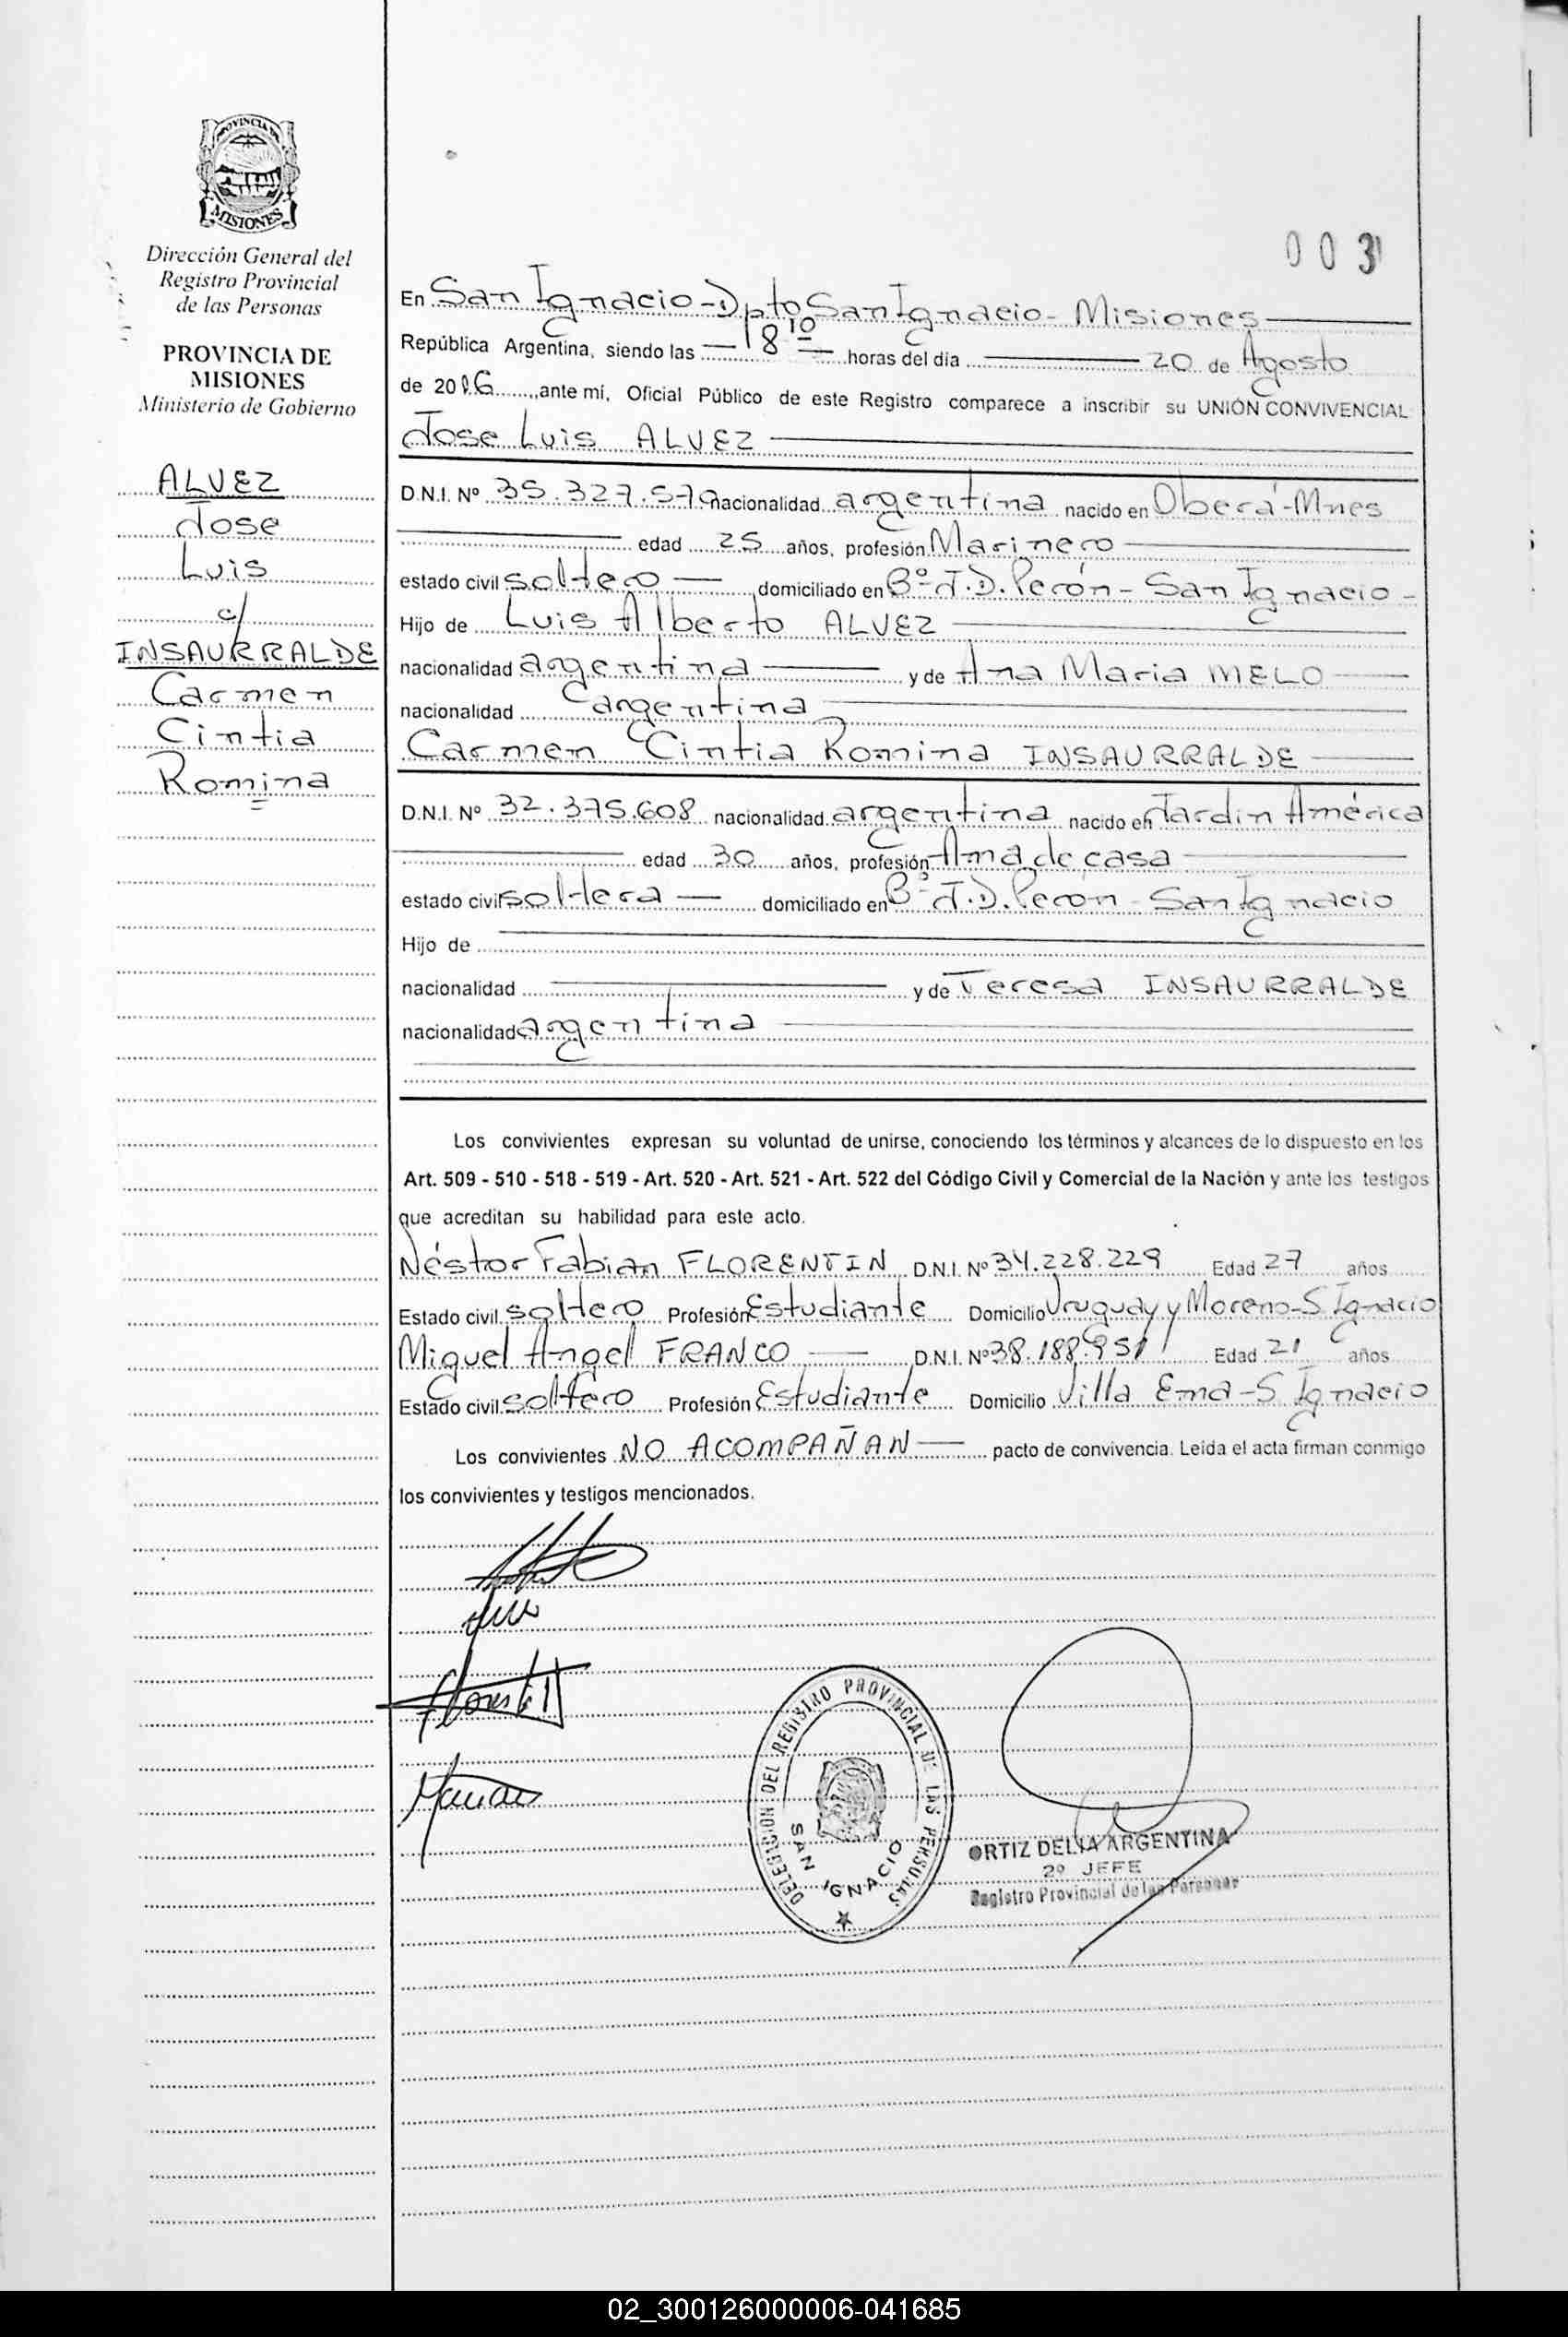 PROVINCIA DE
MISIONES
Dirección General del
Registro Provincial
de las Personas
PROVINCIA DE
MISIONES
Ministerio de Gobierno
ALVEZ
Jose
Luis
c/
INSAURRALDE
Carmen
Cintia
Romina
003
En San Ignacio - Dpto San Ignacio - Misiones
República Argentina, siendo las 18 10 horas del día 20 de Agosto
de 2016 ante mí, Oficial Público de este Registro comparece a inscribir su UNIÓN CONVIVENCIAL
Jose Luis ALVEZ
D.N.I. Nº 35.327.570 nacionalidad argentina nacido en Oberá-Mnes
edad 25 años, profesión Marinero
estado civil soltero domiciliado en Bº J.D. Perón - San Ignacio -
Hijo de Luis Alberto ALVEZ
nacionalidad argentina y de Ana Maria MELO
nacionalidad argentina
Carmen Cintia Romina INSAURRALDE
D.N.I. Nº 32.375.608 nacionalidad argentina nacido en Jardin América
edad 30 años, profesión Ama de casa
estado civil soltera domiciliado en Bº J.D. Peron - San Ignacio
Hijo de
nacionalidad y de Teresa INSAURRALDE
nacionalidad argentina
Los convivientes expresan su voluntad de unirse, conociendo los términos y alcances de lo dispuesto en los
Art. 509 - 510 - 518 - 519 - Art. 520 - Art. 521 - Art. 522 del Código Civil y Comercial de la Nación y ante los testigos
que acreditan su habilidad para este acto.
Néstor Fabian FLORENTIN D.N.I. Nº 34.228.229 Edad 27 años
Estado civil soltero Profesión Estudiante Domicilio Uruguay y Moreno - S. Ignacio
Miguel Angel FRANCO D.N.I. Nº 38.188.951 Edad 21 años
Estado civil soltero Profesión Estudiante Domicilio Villa Ema - S. Ignacio
Los convivientes NO ACOMPAÑAN pacto de convivencia. Leída el acta firman conmigo
los convivientes y testigos mencionados.
DELEGACION DEL REGISTRO PROVINCIAL DE LAS PERSONAS
SAN IGNACIO
ORTIZ DELIA ARGENTINA
2º JEFE
Registro Provincial de las Personas
02_300126000006-041685